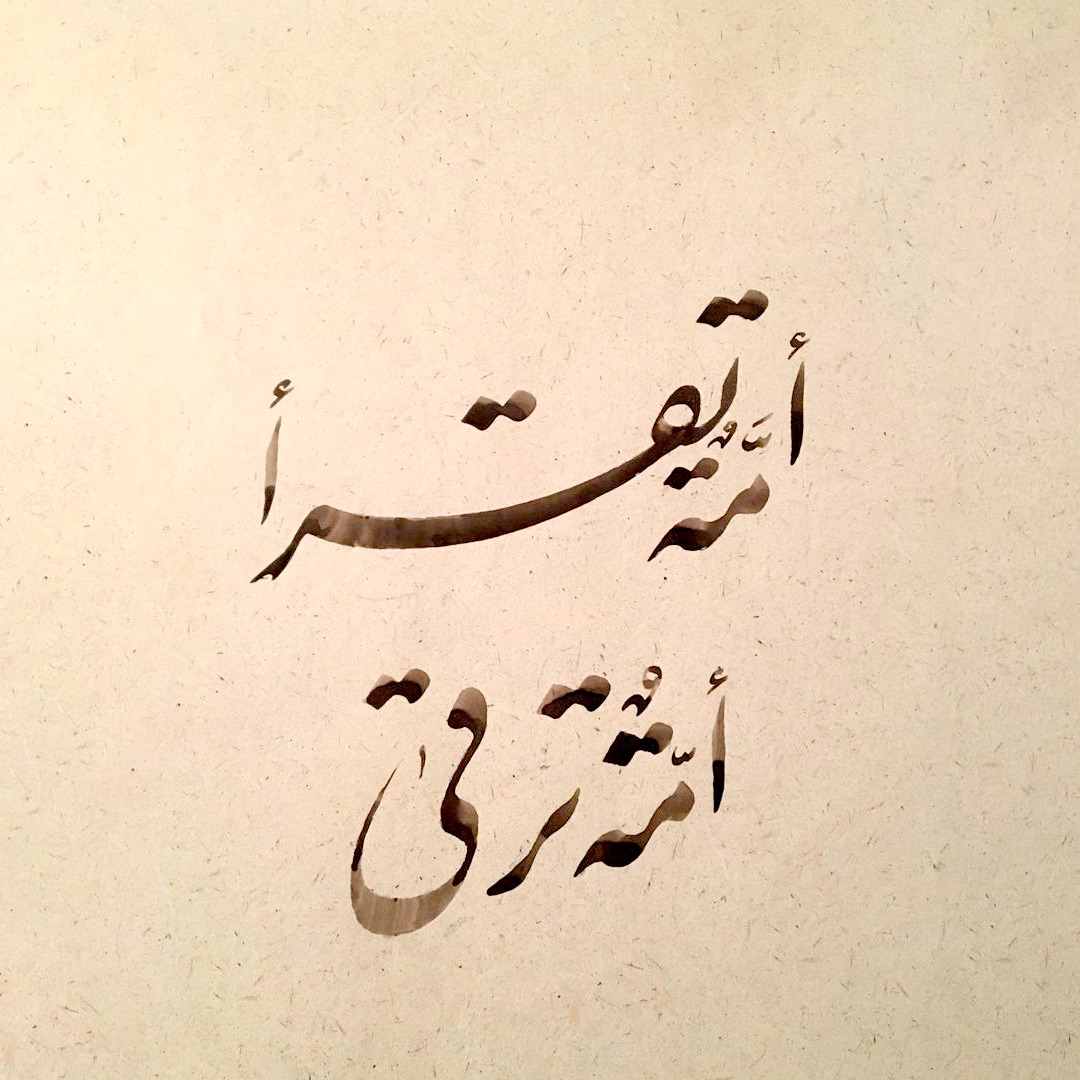 أمَّةٌ تقرأ
أمّةٌ ترقى